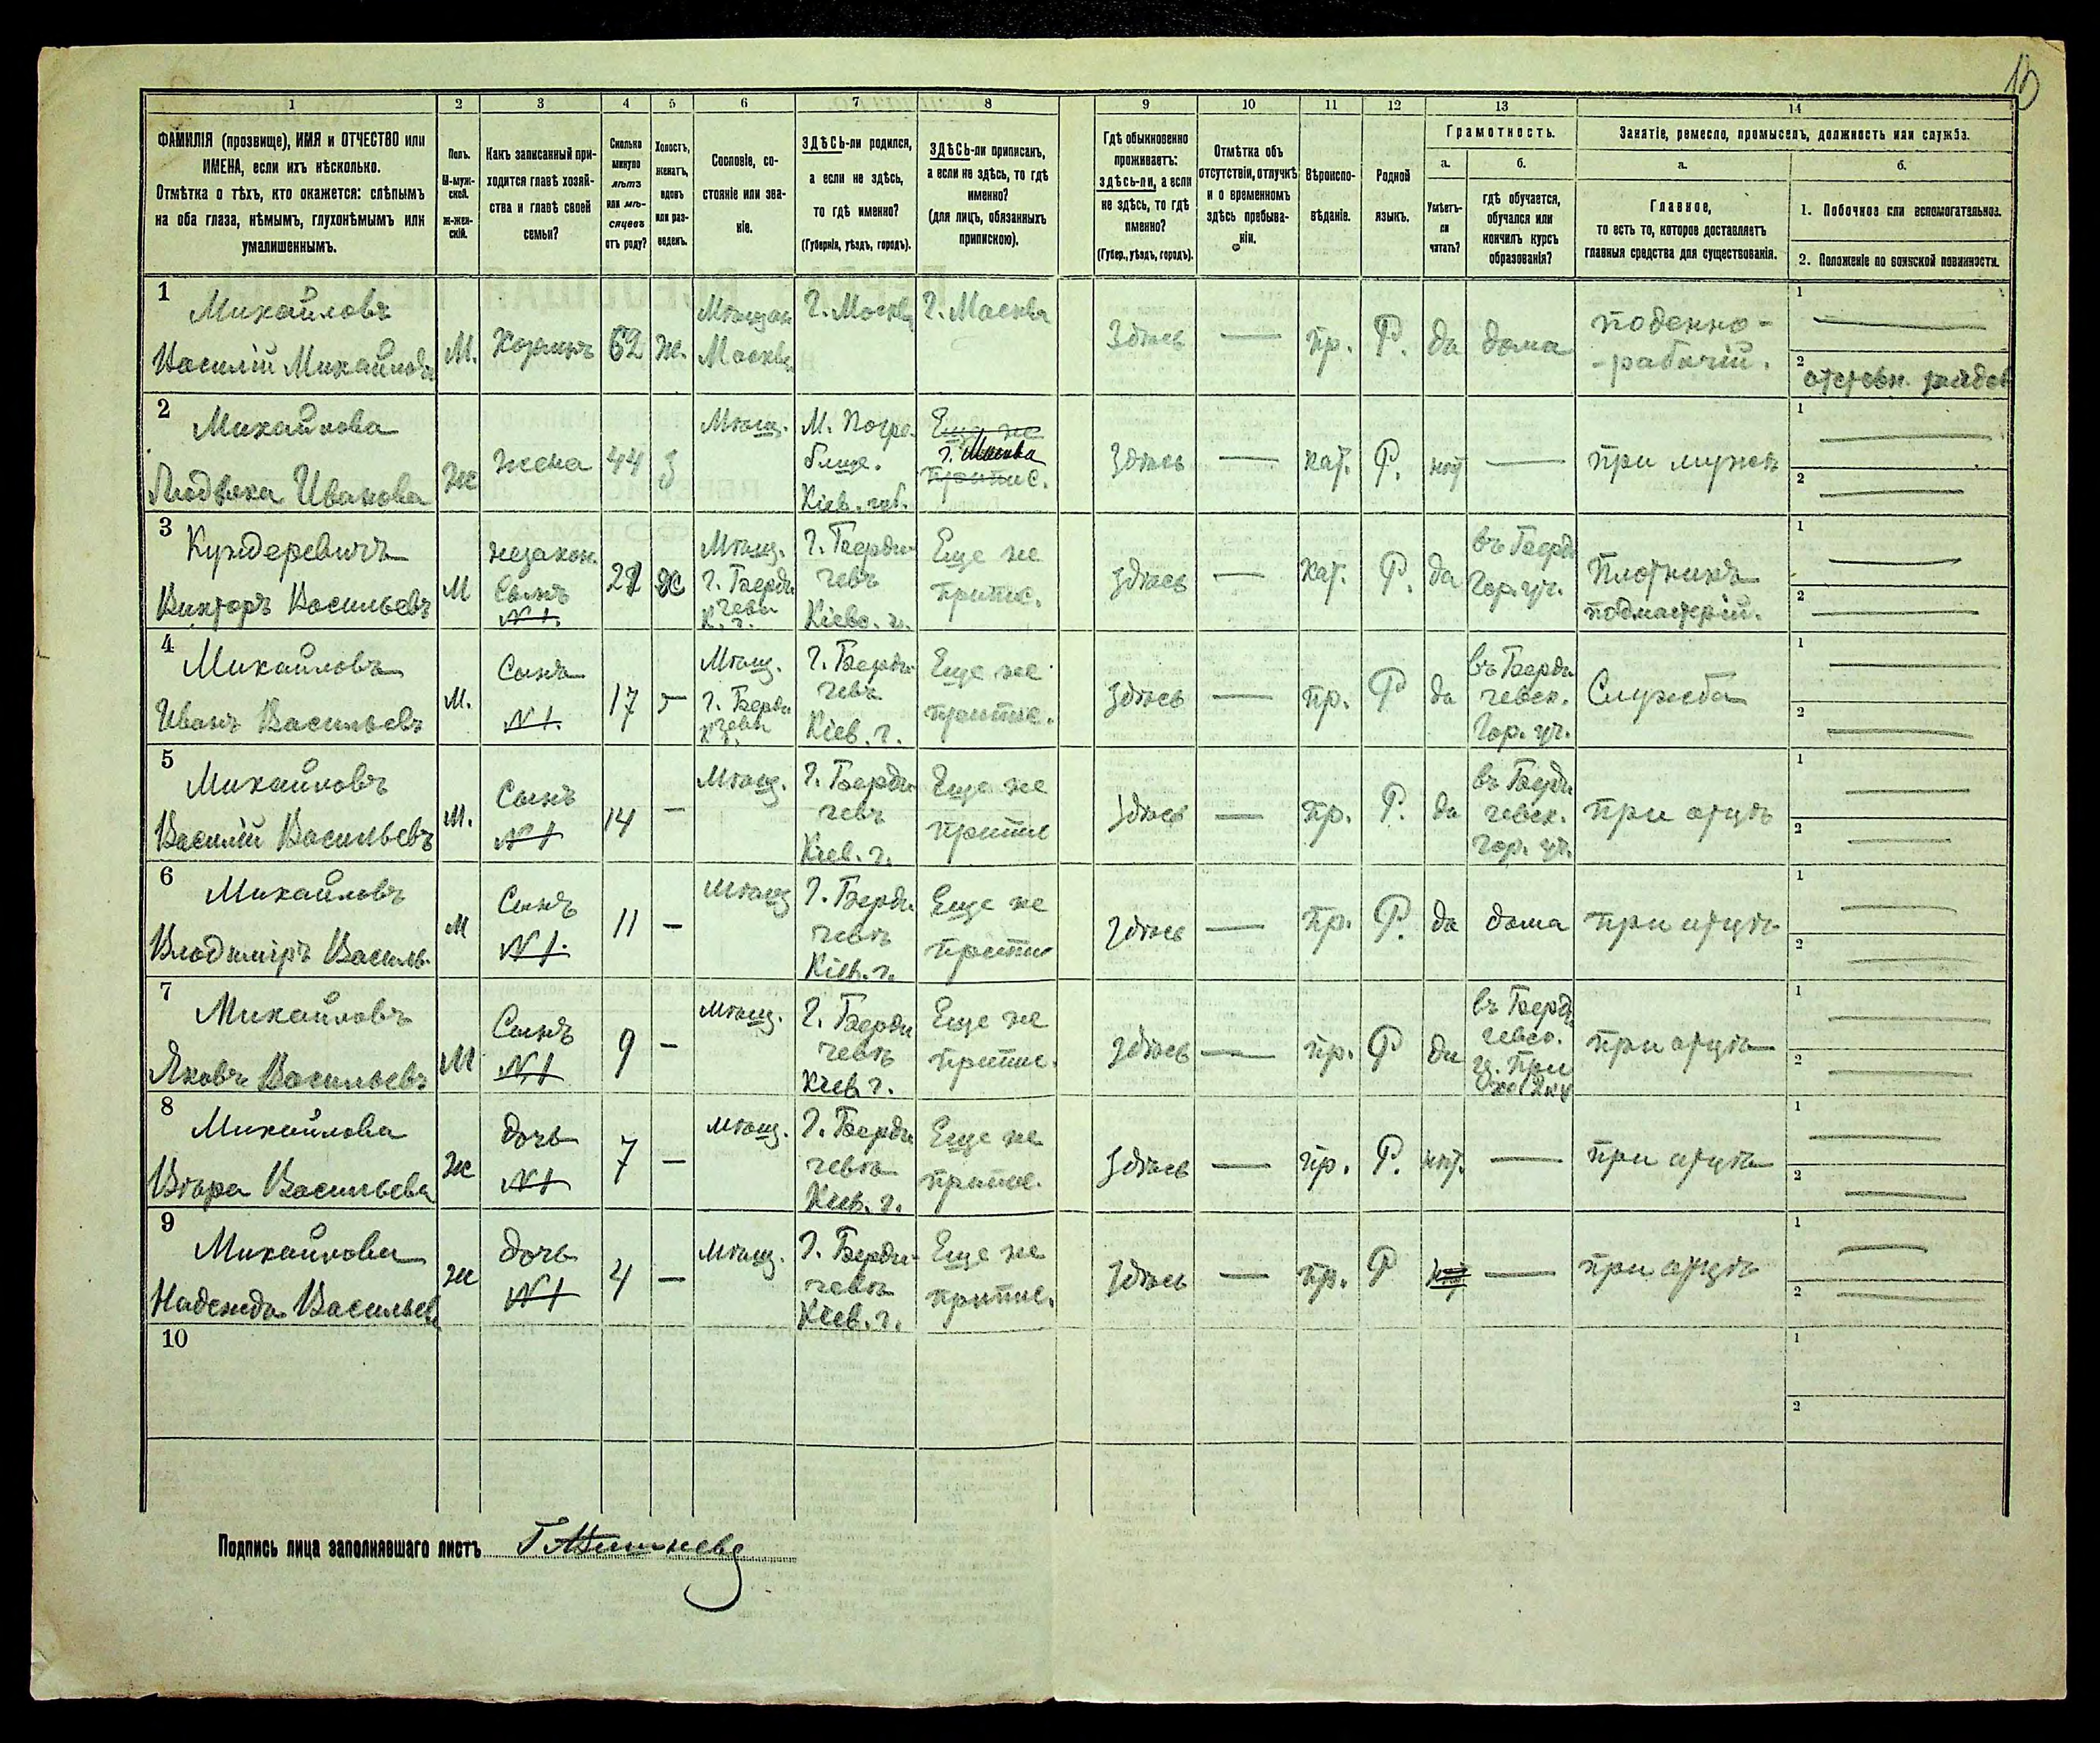 10
1 2 3 4 5 6 7 8 9 10 11 12 13 14
ФАМИЛІЯ (прозвище), ИМЯ и ОТЧЕСТВО или
ИМЕНА, если ихъ нѣсколько.
Отмѣтка о тѣхъ, кто окажется: слѣпымъ
на оба глаза, нѣмымъ, глухонѣмымъ или
умалишеннымъ.
Полъ.
М-муж-
ской.
ж-жен-
скій.
Какъ записанный при-
ходится главѣ хозяй-
ства и главѣ своей
семьи?
Сколько
минуло
лѣтъ
или мѣ-
сяцевъ
отъ роду?
Холостъ,
женатъ,
вдовъ
или раз-
веденъ.
Сословіе, со-
стояніе или зва-
ніе.
ЗДѢСЬ-ли родился,
а если не здѣсь,
то гдѣ именно?
(Губернія, уѣздъ, городъ).
ЗДѢСЬ-ли приписанъ,
а если не здѣсь, то гдѣ
именно?
(для лицъ, обязанныхъ
припискою).
Гдѣ обыкновенно
проживаетъ:
здѣсь-ли, а если
не здѣсь, то гдѣ
именно?
(Губер., уѣздъ, городъ).
Отмѣтка объ
отсутствіи, отлучкѣ
и о временномъ
здѣсь пребыва-
ніи.
Вѣроиспо-
вѣданіе.
Родной
языкъ.
Грамотность.
а.
Умѣетъ-
ли
читать?
б.
гдѣ обучается,
обучался или
кончилъ курсъ
образованія?
Занятіе, ремесло, промыселъ, должность или служба.
а.
Главное,
то есть то, которое доставляетъ
главныя средства для существованія.
б.
1. Побочное или вспомогательное.
2. Положеніе по воинской повинности.
1
Михайловъ
Василій Михайлов
М.
Хозяинъ
62
ж.
Мѣщан
Москвы
Г. Москва
Г. Москва
Здѣсь
—
пр.
Р.
да
дома
поденно-
-рабочій.
1
2
2
Михайлова
Людвика Иванова
Ж
жена
44
З
Мѣщ.
М. Погре-
бище.
Кіев. губ.
Еще не
г. Москва
припис.
Здѣсь
—
кат.
Р.
нѣт
—
при мужѣ
1
2
3
Кундеревичъ
Викторъ Васильевъ
М
незакон.
Сынъ
№ 1.
Мѣщ.
г. Берди
чева
К. г.
г. Берди-
чевъ
Кіево. г.
Еще не
припис.
Здѣсь
—
кат.
Р.
да
въ Берд
Гор. уч.
Плотникъ
подмастерій.
1
2
4
Михайловъ
Иванъ Васильевъ
М.
Сынъ
№ 1.
17
—
Мѣщ.
г. Берди
чева
К. г.
г. Берди-
чевъ
Кіев. г.
Еще не
припис.
Здѣсь
—
пр.
Р
да
въ Берди
чевск.
Гор. уч.
Служба
1
2
5
Михайловъ
Василій Васильевъ
М.
Сынъ
№ 1
14
—
Мѣщ.
г. Берди
чевъ
Кіев. г.
Еще не
припис
Здѣсь
—
пр.
Р.
да
въ Берди
чевск.
гор. уч.
при отцѣ
1
2
6
Михайловъ
Владиміръ Василь.
М
Сынъ
№ 1.
11
—
Мѣщ
г. Берди
чевъ
Кіев. г.
Еще не
припис
Здѣсь
—
пр.
Р.
да
дома
при отцѣ
1
2
7
Михайловъ
Яковъ Васильевъ
М
Сынъ
№ 1
9
—
Мѣщ.
г. Берди
чевъ
Кіев. г.
Еще не
припис.
Здѣсь
—
пр.
Р
да
въ Берди
чевск.
при отцѣ
1
2
8
Михайлова
Вѣра Васильева
Ж
дочь
№ 1
7
—
Мѣщ.
г. Берди
чевъ
Кіев. г.
Еще не
припис.
Здѣсь
—
пр.
Р.
нѣт.
—
при отцѣ
1
2
9
Михайлова
Надежда Васильев
Ж
дочь
№ 1
4
—
Мѣщ.
г. Берди-
чевъ
Кіев. г.
Еще не
припис.
Здѣсь
—
пр.
Р
—
при отцѣ
1
2
10
1
2
Подпись лица заполнявшаго листъ